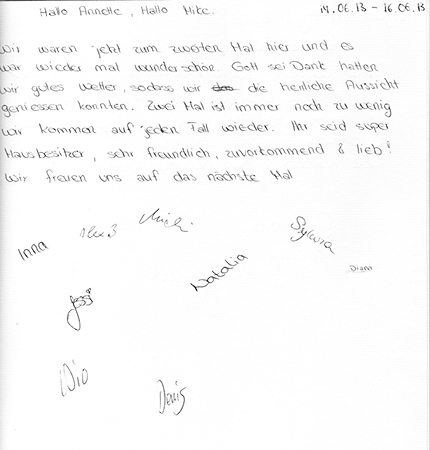 Hallo Annette, Hallo Mike. 14.06.13 - 16.06.13
Wir waren jetzt zum zweiten Mal hier und es
war wieder mal wunderschön. Gott sei Dank hatten
wir gutes Wetter, sodass wir die herrliche Aussicht
geniessen konnten. Zwei Mal ist immer noch zu wenig
wir kommen auf jeden Fall wieder. Ihr seid super
Hausbesitzer, sehr freundlich, zuvorkommend & lieb!
Wir freuen uns auf das nächste Mal
Michi
Sylwia
Inna
Natalia
Diana
Jessi
Denis